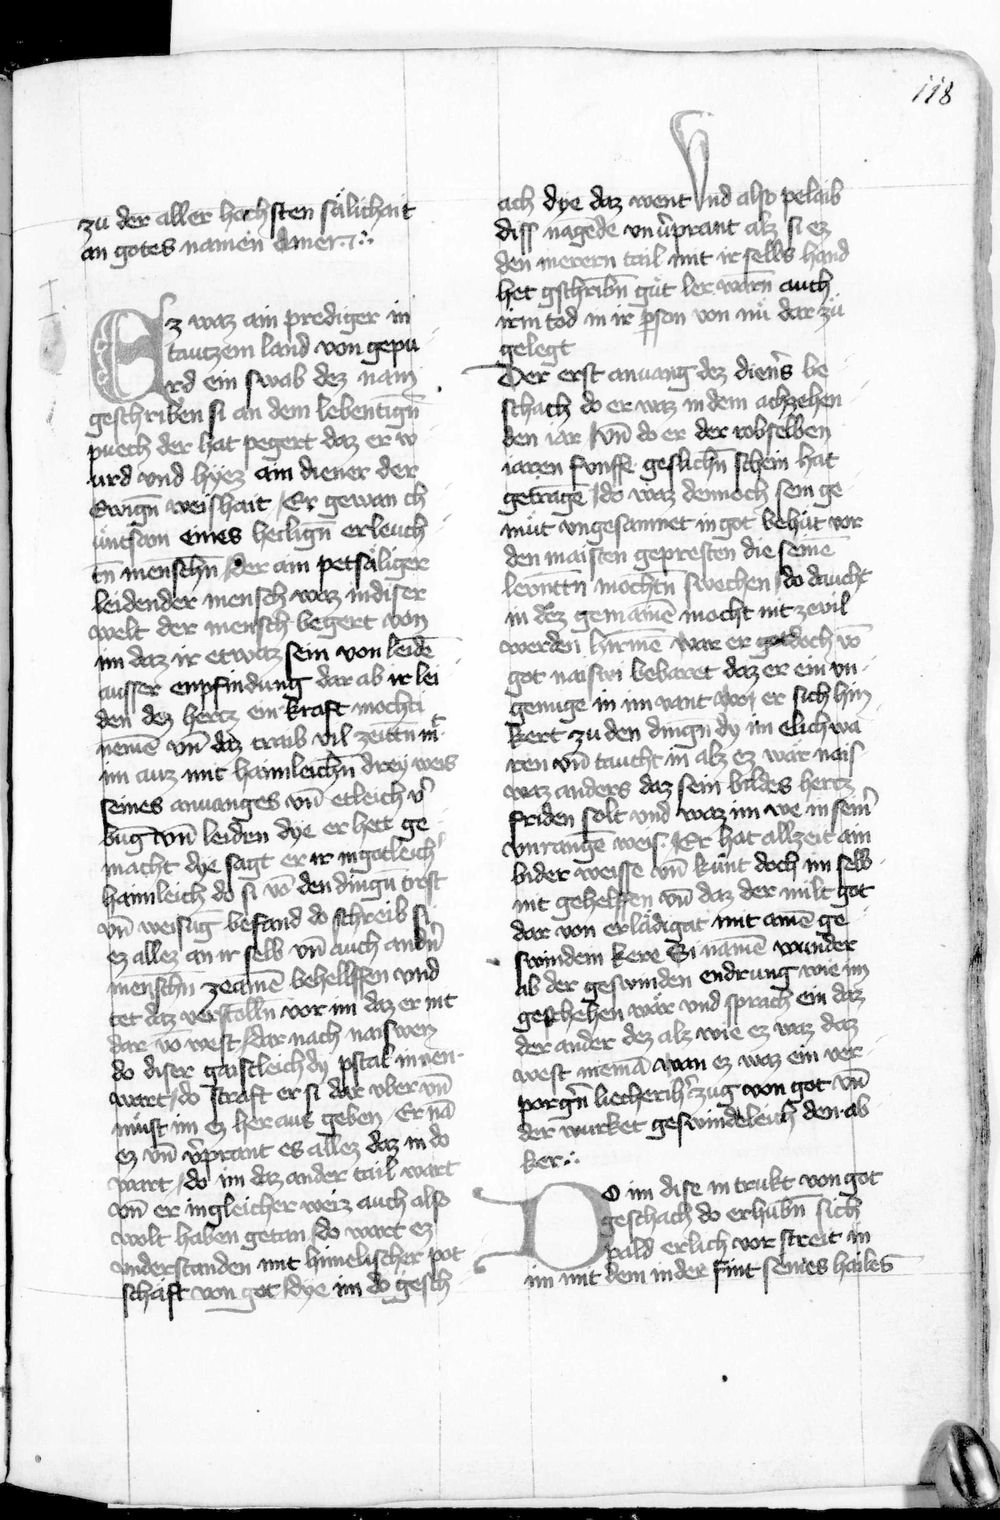 118
zu der aller hachsten sälichait
an gotes namen Amen ∴
Ez waz ain prediger in
tautzem land von gepu
rd ein swab dez nam
geschriben si an dem lebentign̄
puech der hat pegert daz er w
urd vnd hyez ain diener der
Ewign̄ weishait / Er gewan ch
üntsam eines heilign̄ erleuch
tn̄ menschn̄ / der ain petsäliger
leidender mensch waz in diser
welt der mensch begert von
im daz ir etwaz sein von leidē
ausser enpfindung dar ab ir lei
den dez hertz ein kraft mochti
nemē vn̄ daz traib vil zeittn̄ mͭ
im auz mit haimleichn̄ drey weis
seines anuanges vn̄ etleich v̓
bug vn̄ leiden dye er hett ge
macht dye sagt er ir in gotleich̓
haimleich do si vō den dingn̄ trost
vn̄ weisūg befand do schreib si
ez allez an ir selb vn̄ auch andn̓
menschn̄ zeamē behellffen vnd
tet daz verstolln̄ vor im daz er nit
dar vō west / dar nach naiswen
do diser gaistleich dy pstal innen
wart / do straft er si dar vber vn̄
müst im ez her aus geben Er nā
ez vn̄ v̓prant es allez daz in do
wart / do im daz ander tail wart
vn̄ er in gleicher weiz auch also
wolt haben getan / do wart ez
vnderstanden mit himelischer pot
schaft von got / dye im do gesch
ach dye daz went Vnd also pelaib
diss nagēde vnv̓prant alz si ez
den merern tail mit ir sells hand
het gschribn̄ güt ler warn̄ auch
irm tod in ir pson von nü dar zü
gelegt
Der erst anuang dez dien̓s be
schach do er waz in dem achzehen
den iar / vn̄ do er der robselben
iaren funffe geslichn̄ schein hat
getragē / do waz dennoch sein ge
müt vngesamnet in got behüt vor
den maisten gepresten die seinē
levnttn̄ mochtn̄ swechen / do daucht
in dez gemainē mocht nit ze vil
werden hirinē war er got doch vō
got naiswi bebaret daz er ein vn
genuge in im vant wo er sich hin
kert zu den dingn̄ dy im elich wa
ren vn̄ taucht in alz ez wär nais
waz anders daz sein bildes hertz
friden solt vnd waz im we in sein̓
vnrangē weis / Er hat allzeit ain
bider weisse vn̄ künt doch im selb
nit gehelffen vn̄ daz der milt got
dar von erlädigat mit amē ge
swindem kere Si namē wunder
ab der geswinden endrung wie im
geschehen wär vnd sprach ein daz
der ander dez alz wie ez waz daz
west niemā wan ez waz ein ver
porgn̄ liecherich̓ zug von got vn̄
der wurket geswindeleich̓ den ab
ker ∴
Do im dise intrukt von got
geschach do erhubn̄ sich
pald erlich vor streit in
im mit dem in der fint seines hailes